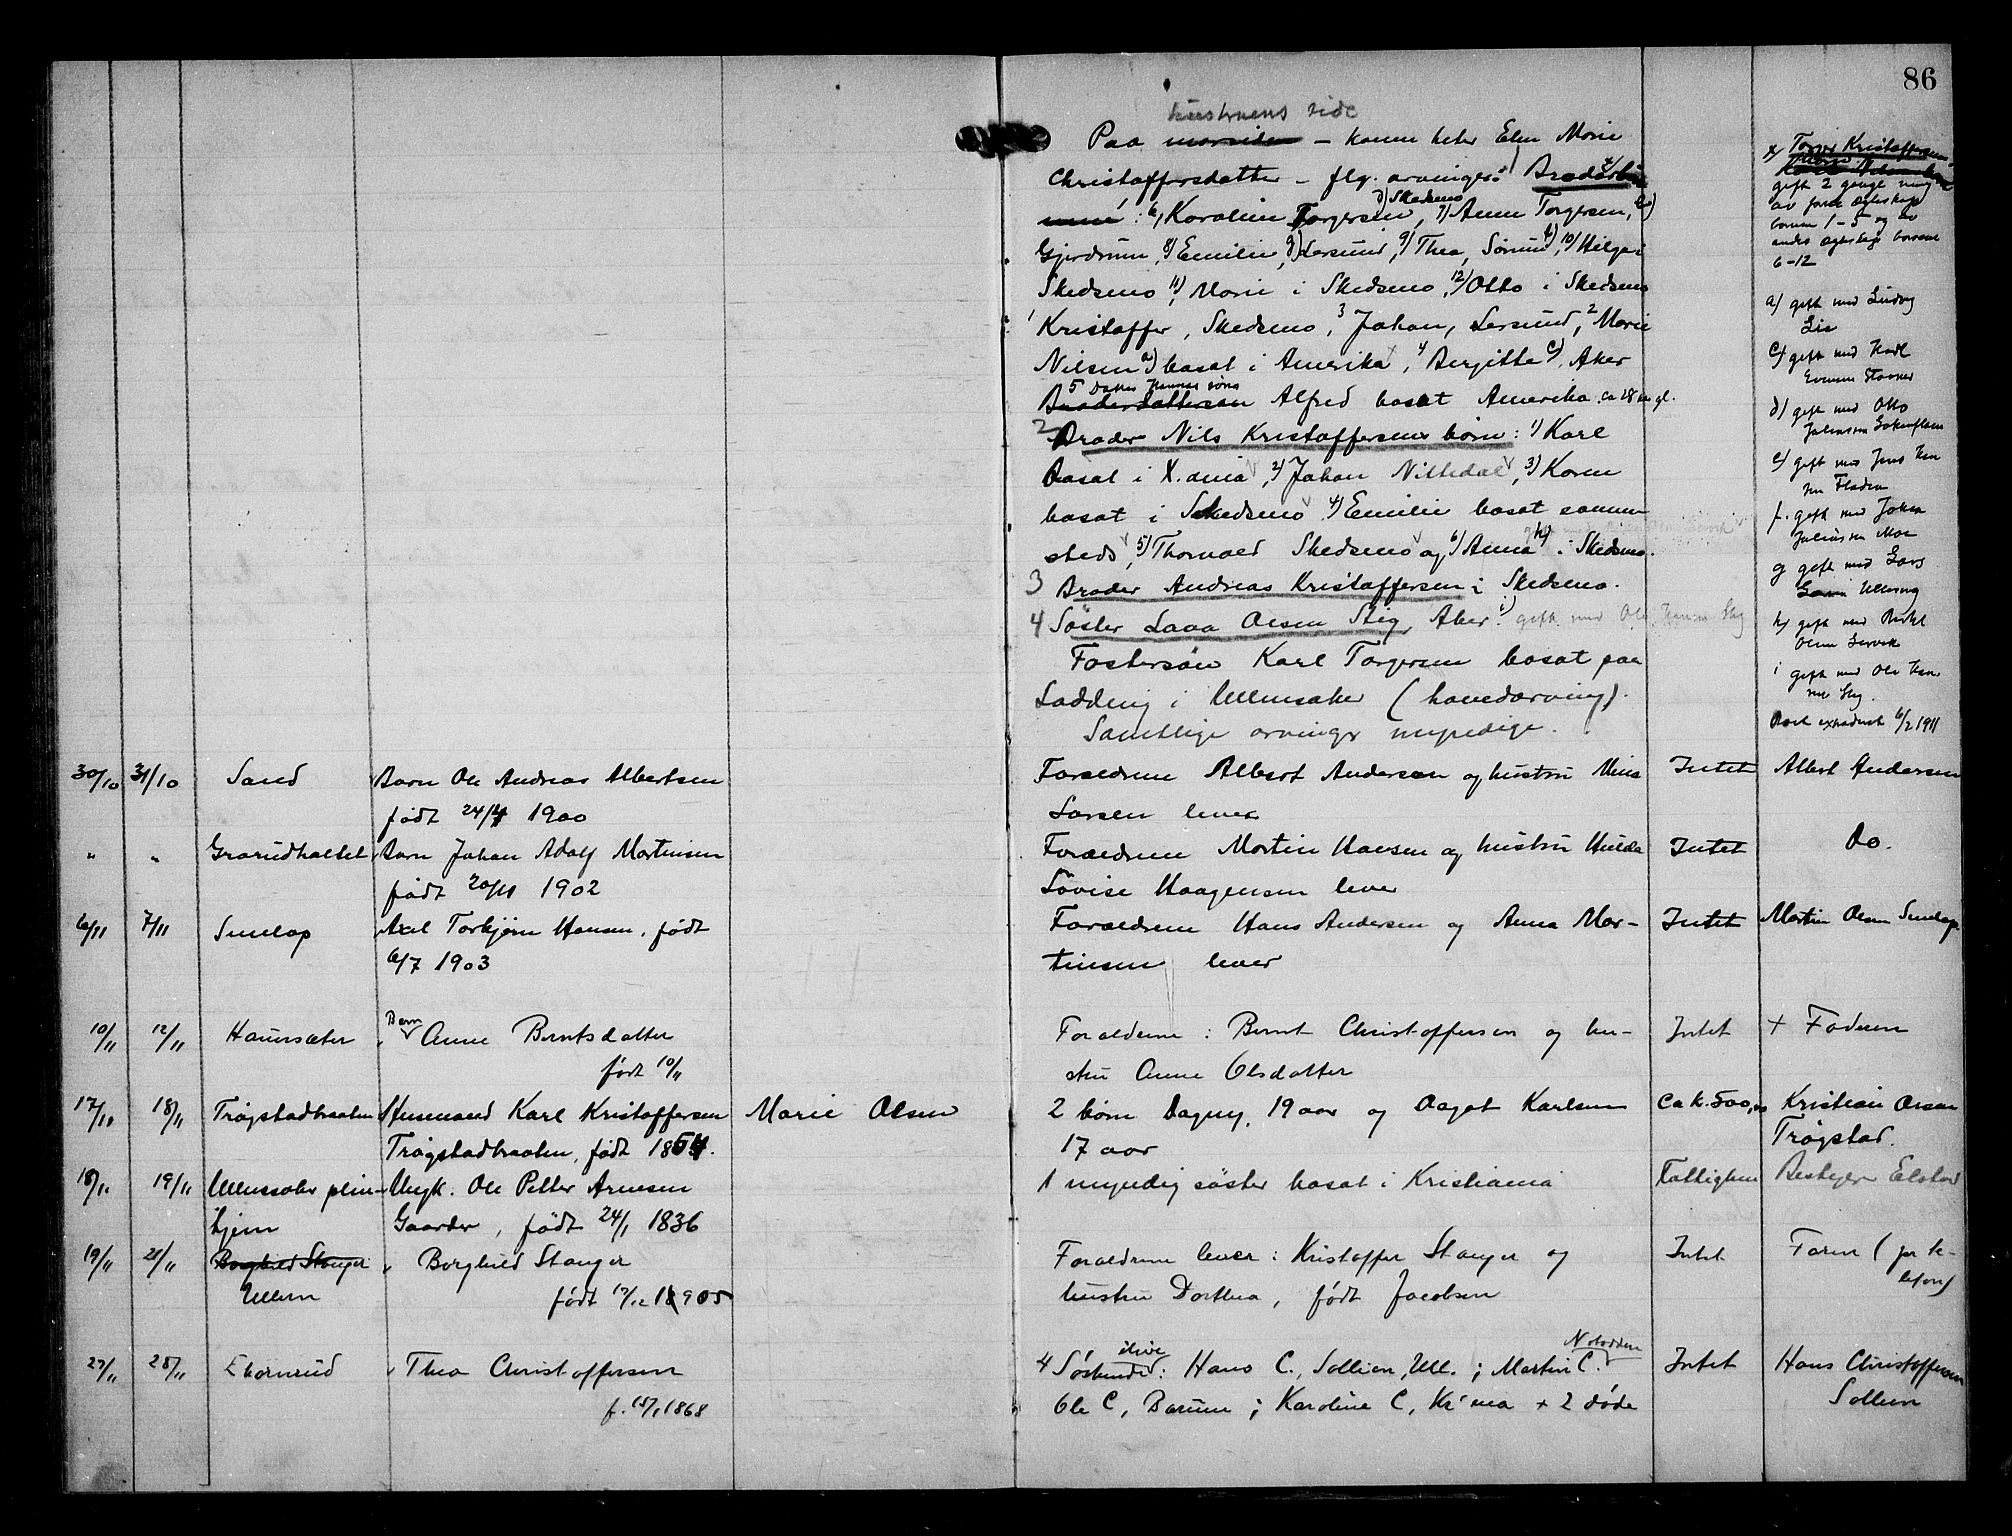 86
hustruens side
Paa morsiden – konen heter Elen Marie
Christoffersdatter – flg. arvinger: 1) Broderbørn
6) Karoline Torgersen, d) Skedsmo 7) Anne Torgersen, e)
Gjerdrum, 8) Emilie, g) Lersund, 9) Thea, Sørum f), 10) Helga i
Skedsmo 11) Marie i Skedsmo, 12) Otto i Skedsmo
1 Kristoffer, Skedsmo, 3 Johan, Lersund, 2 Marie
Nilsen a) bosat i Amerika, 4 Bergitte c), Aker
5 Datter Hannas søns
Broderdattersøn Alfred bosat Amerika ca 28 aar gl.
2 Broder Nils Kristoffersens børn: 1) Karl
bosat i X.ania, 2) Johan Nittedal, 3) Karen
bosat i Skedsmo 4) Emilie bosat sammen
steds, 5) Thorvald Skedsmo og 6) Anna h) i Skedsmo.
3 Broder Andreas Kristoffersen i Skedsmo.
4 Søster Lava Olsen Steg, Aker. i) gift med Ole Hansen Steg
Fostersøn Karl Torgersen bosat paa
Ladding i Ullensaker (hovedarving).
Samtlige arvinger myndige.
x) Torger Kristoffersen
gift 2 gange
av første ægteskap
barnene 1-5 og av
andet ægteskap barnene
6-12
a) gift med Ludvig
Lie
c) gift med Karl
Evensen Stovner
d) gift med Otto
Julinsen
e) gift med Jens Han
sen Fladen
f. gift med Johan
Juliussen Moe
g gift med Lars
Ullereng
h) gift med
Olsen Lervik
i gift med Ole Han
sen Steg.
Bost extraderet 6/2 1911
30/10 31/10 Sand Barn Ole Andreas Albertsen Forældrene Albert Andersen og hustru Mina Intet Albert Andersen
født 24/4 1900 Larsen lever
" " Grorudholtet Barn Johan Adolf Martinsen Forældrene Martin Hansen og hustru Hulda Intet Do.
født 20/11 1902 Lovise Haagensen lever
6/11 7/11 Smelop Axel Torbjørn Hansen, født Forældrene Hans Andersen og Anna Mar- Intet Martin Olsen Smelop.
6/7 1903 tinsen lever
10/11 12/11 Hauersæter Barn Anne Berntsdatter Forældrene: Bernt Christoffersen og hu- Intet + Faderen
født 10/11 stru Anne Olsdatter
17/11 18/11 Trøgstadbraaten Husmand Karl Kristoffersen Marie Olsen 2 børn Dagny, 19 aar og Aagot Karlsen Ca k. 500,00 Kristian Olsen
Trøgstadbraaten, født 1854. 17 aar Trøgstad.
18/11 19/11 Ullensaker pleie- Ungk. Ole Petter Arnesen 1 myndig søster bosat i Kristiania Fattiglem Bestyrer Elstad
hjem Gaarder, født 24/1 1836
19/11 21/11 Borghild Stanger Borghild Stanger Forældrene lever: Kristoffer Stanger og Intet Faren (pr te-
Ullern født 17/12 1905 hustru Dorthea, født Jacobsen lefon)
27/11 28/11 Ekornrud Thea Christoffersen 4 Søskende ilive: Hans C., Sollien, Ull.; Martin C. Notodden Intet Hans Christoffersen
f. 15/1 1868 Ole C, Bærum; Karoline C, Kr'ania + 2 døde Sollien